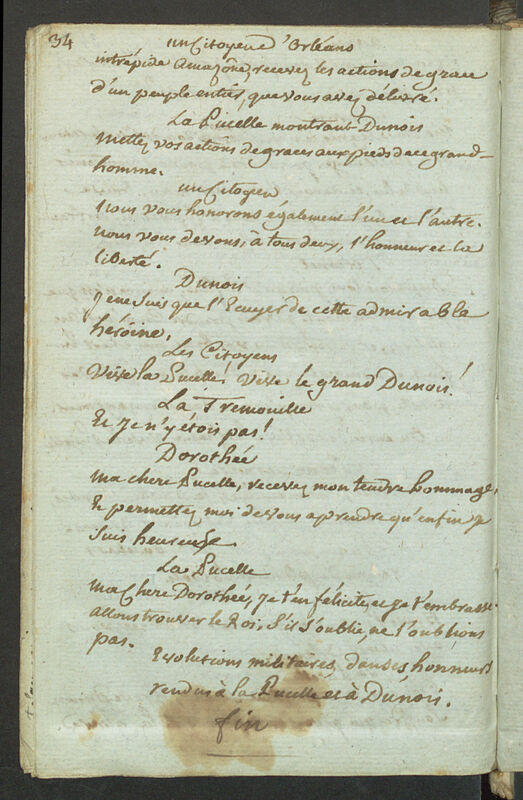 34
un Citoyen d'Orléans
intrépide Amazône, recevez les actions de grace
d'un peuple entier, que vous avez délivré.
La Pucelle montrant Dunois
Mettez vos actions de graces aux pieds de ce grand-
homme.
un Citoyen
Nous vous honorons également l'un et l'autre.
nous vous devons, à tous deux, l'honneur et la
liberté.
Dunois
Je ne suis que l'Ecuyer de cette admirabla
héroïne.
Les Citoyens
Vive la Pucelle! Vive le grand Dunois!
La Tremouille
Et Je n'y étois pas!
Dorothée
ma chere Pucelle, recevez mon tendre hommage,
Et permettez moi de vous aprendre qu'enfin je
suis heureuse
La Pucelle
ma Chere Dorothée, Je t'en félicite, et je t'embrasse
allons trouver le Roi, S'il s'oublie, ne l'oublions
pas.
Evolutions militaires, danses, honneurs
rendus à la Pucelle et à Dunois.
fin